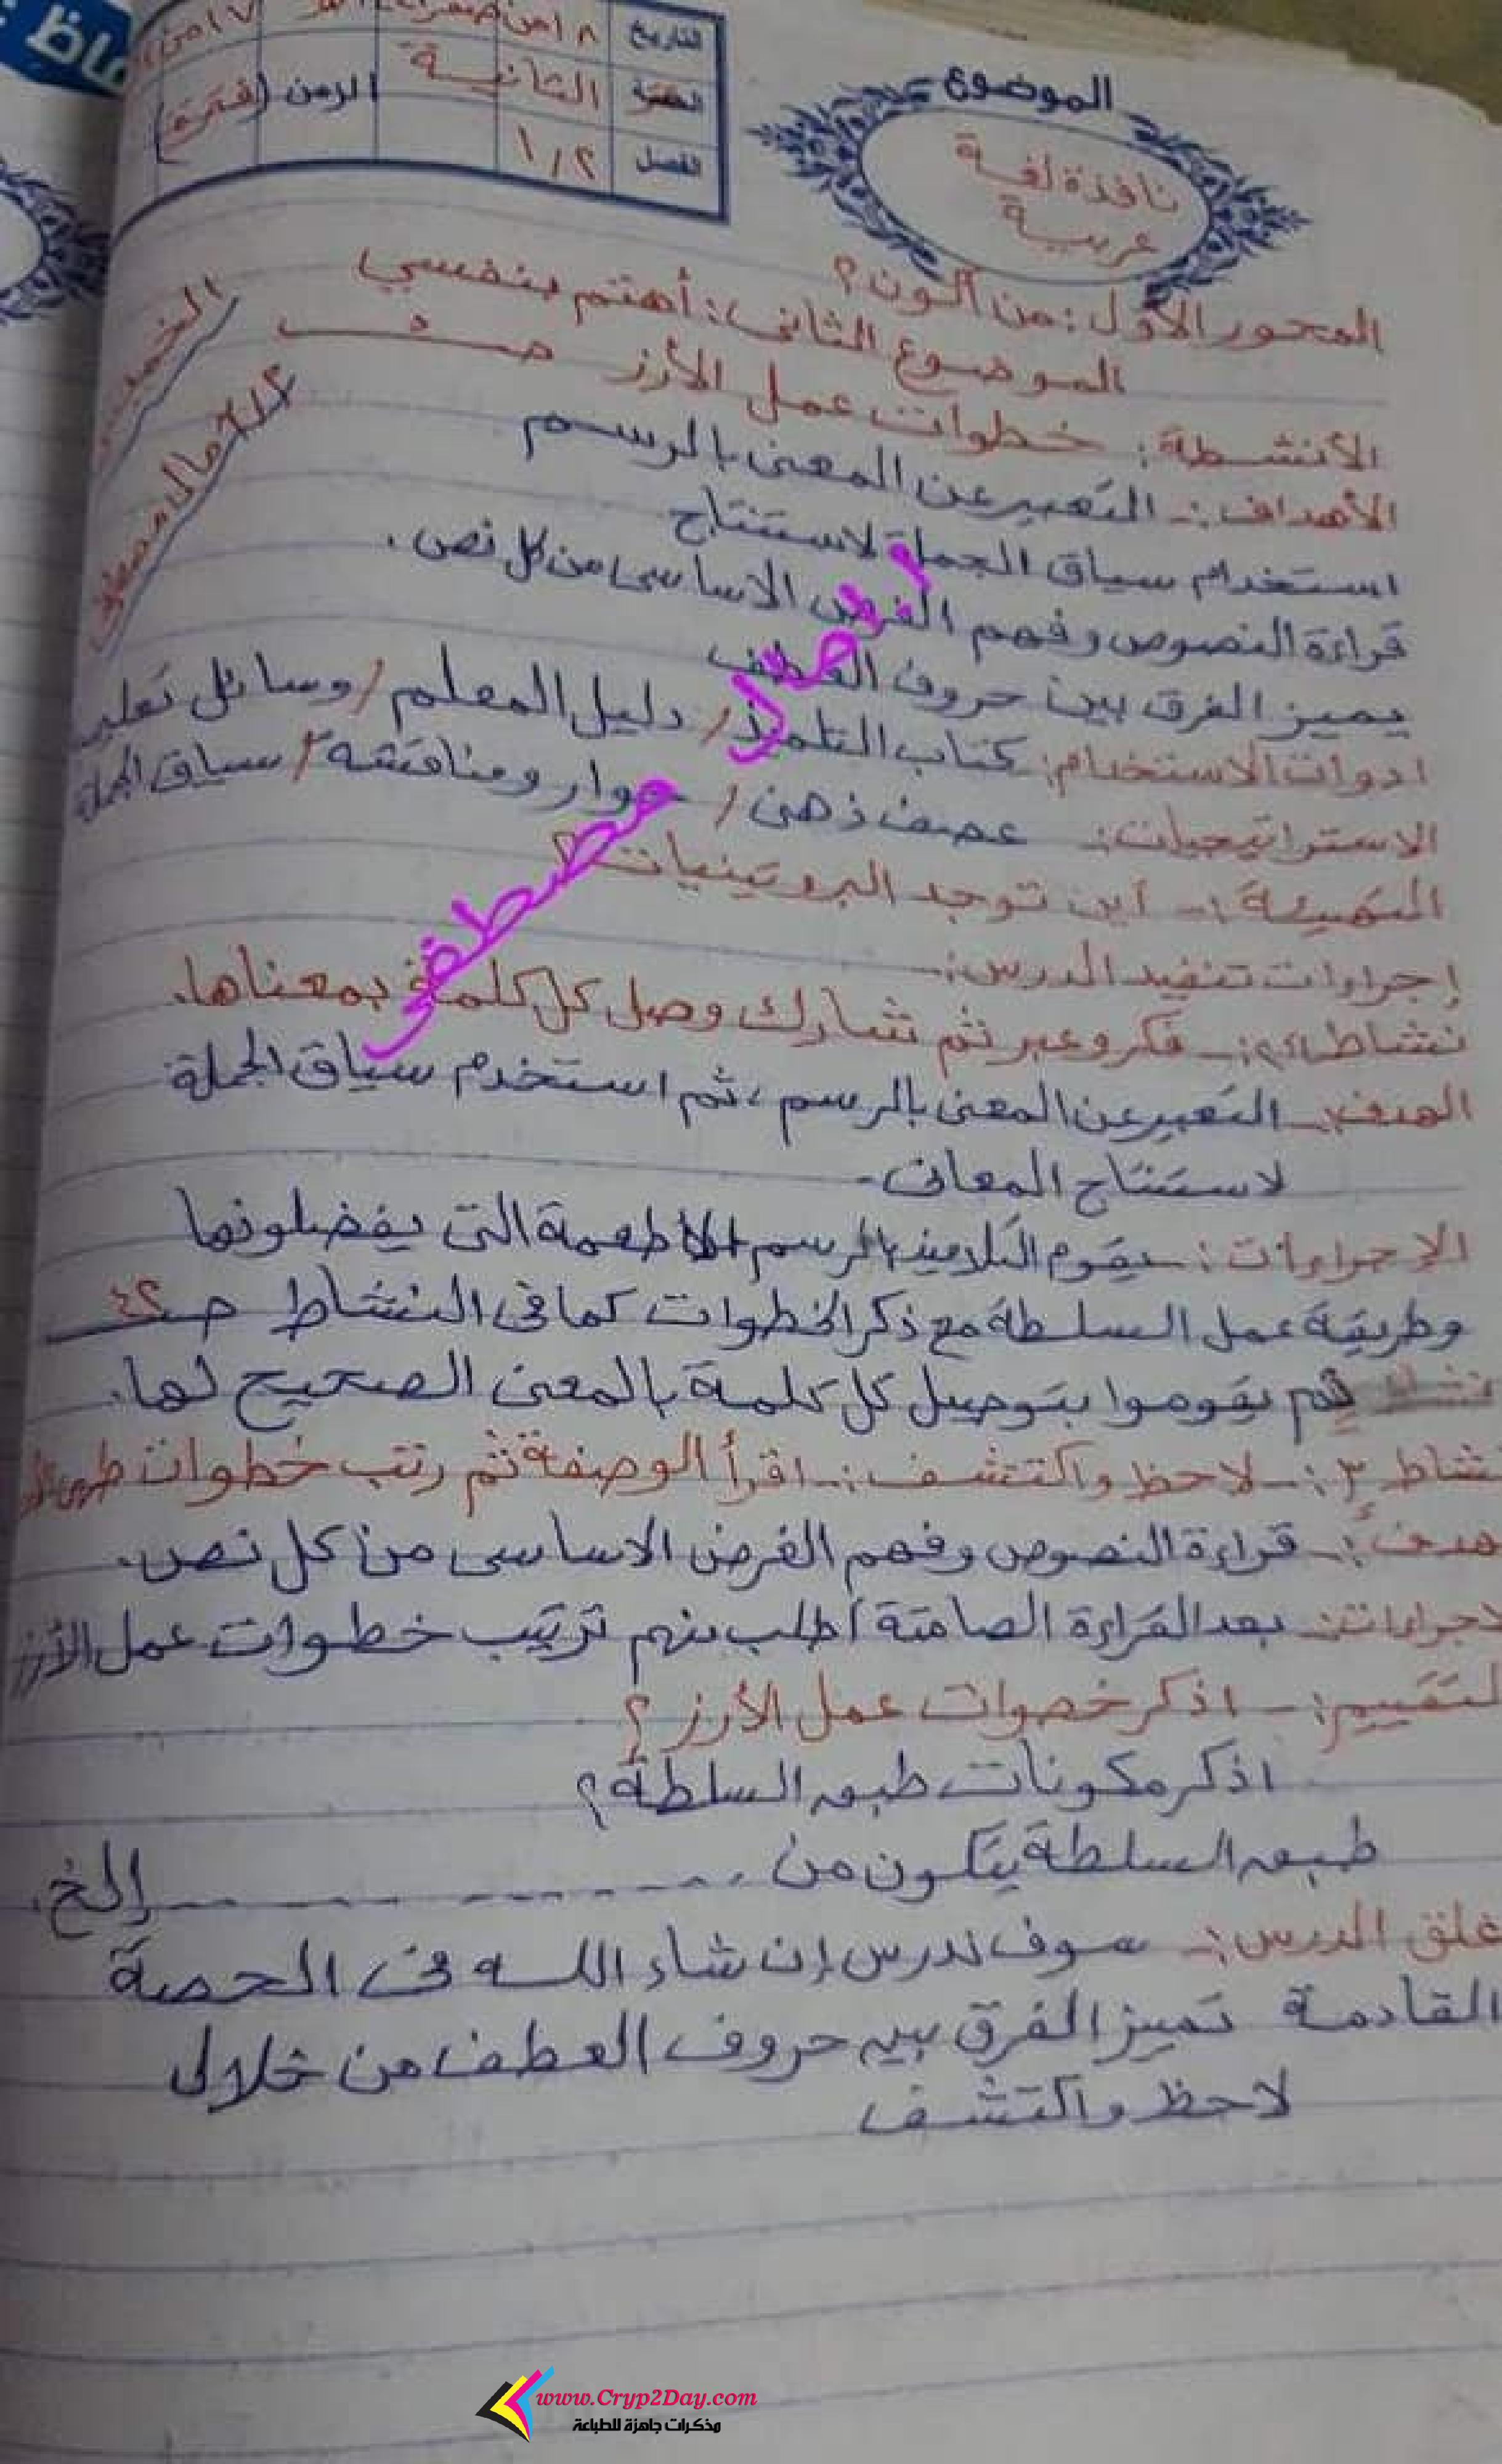 الموضوع
نافذة لغة
عربية
التاريخ ١٨ من صفر
الثانية الزمن (فترة)
الفصل ١/٢
المحور الأول: من أكون؟
الموضوع الثاني: أهتم بنفسي
الأنشطة: خطوات عمل الأرز صـ
الأهداف:- التعبير عن المعنى بالرسم
استخدام سياق الجملة لاستنتاج
قراءة النصوص وفهم الغرض الاساسى من كل نص.
يميز الفرق بين حروف العطف
ادوات الاستخدام: كتاب التلميذ / دليل المعلم / وسائل تعليم
الاستراتيجيات:- عصف ذهنى / حوار ومناقشة / سياق الجملة
التهيئة:- أين توجد البروتينيات؟
إجراءات تنفيذ الدرس:-
نشاط :- فكر وعبر ثم شارك وصل كل كلمة بمعناها.
الهدف:- التعبير عن المعنى بالرسم، ثم استخدم سياق الجملة
لاستنتاج المعانى-
الإجراءات:- يقوم التلاميذ بالرسم الاطعمة التى يفضلونها
وطريقة عمل السلطة مع ذكر الخطوات كما فى النشاط صـ ٢٤
ثم يقوموا بتوصيل كل كلمة بالمعنى الصحيح لها.
نشاط ٣:- لاحظ واكتشف:- اقرأ الوصفة ثم رتب خطوات طهى
هدف:- قراءة النصوص وفهم الغرض الاساسى من كل نص.
لاجراءات:- بعد القراءة الصامتة أطلب منهم ترتيب خطوات عمل الأرز
لتقييم:- اذكر خصوات عمل الأرز؟
اذكر مكونات طبق السلطة؟
طبق السلطة يتكون من ........ إلخ.
غلق الدرس:- سوف ندرس إن شاء الله فى الحصة
القادمة تميز الفرق بين حروف العطف من خلال
لاحظ واكتشف
www.Cryp2Day.com
مذكرات جاهزة للطباعة